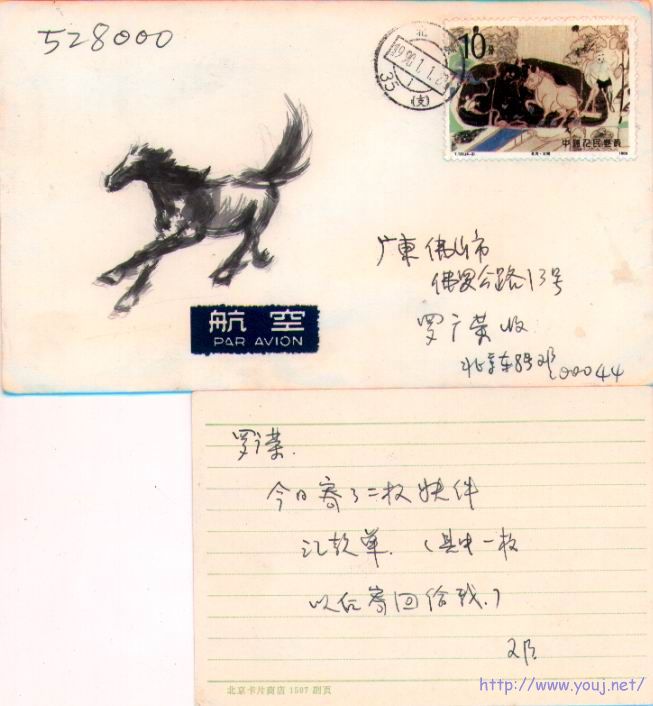 528000
北
1990.1.1.2
35
(支)
10分
中国人民邮政
航空
PAR AVION
广东佛山市
佛罗公路13号
罗广荣收
北京东35邓100044
罗广荣.
今日寄了二枚快件
汇款单.(其中一枚
以后寄回给我.)
邓
北京卡片商店 1507 副页
http://www.youj.net/